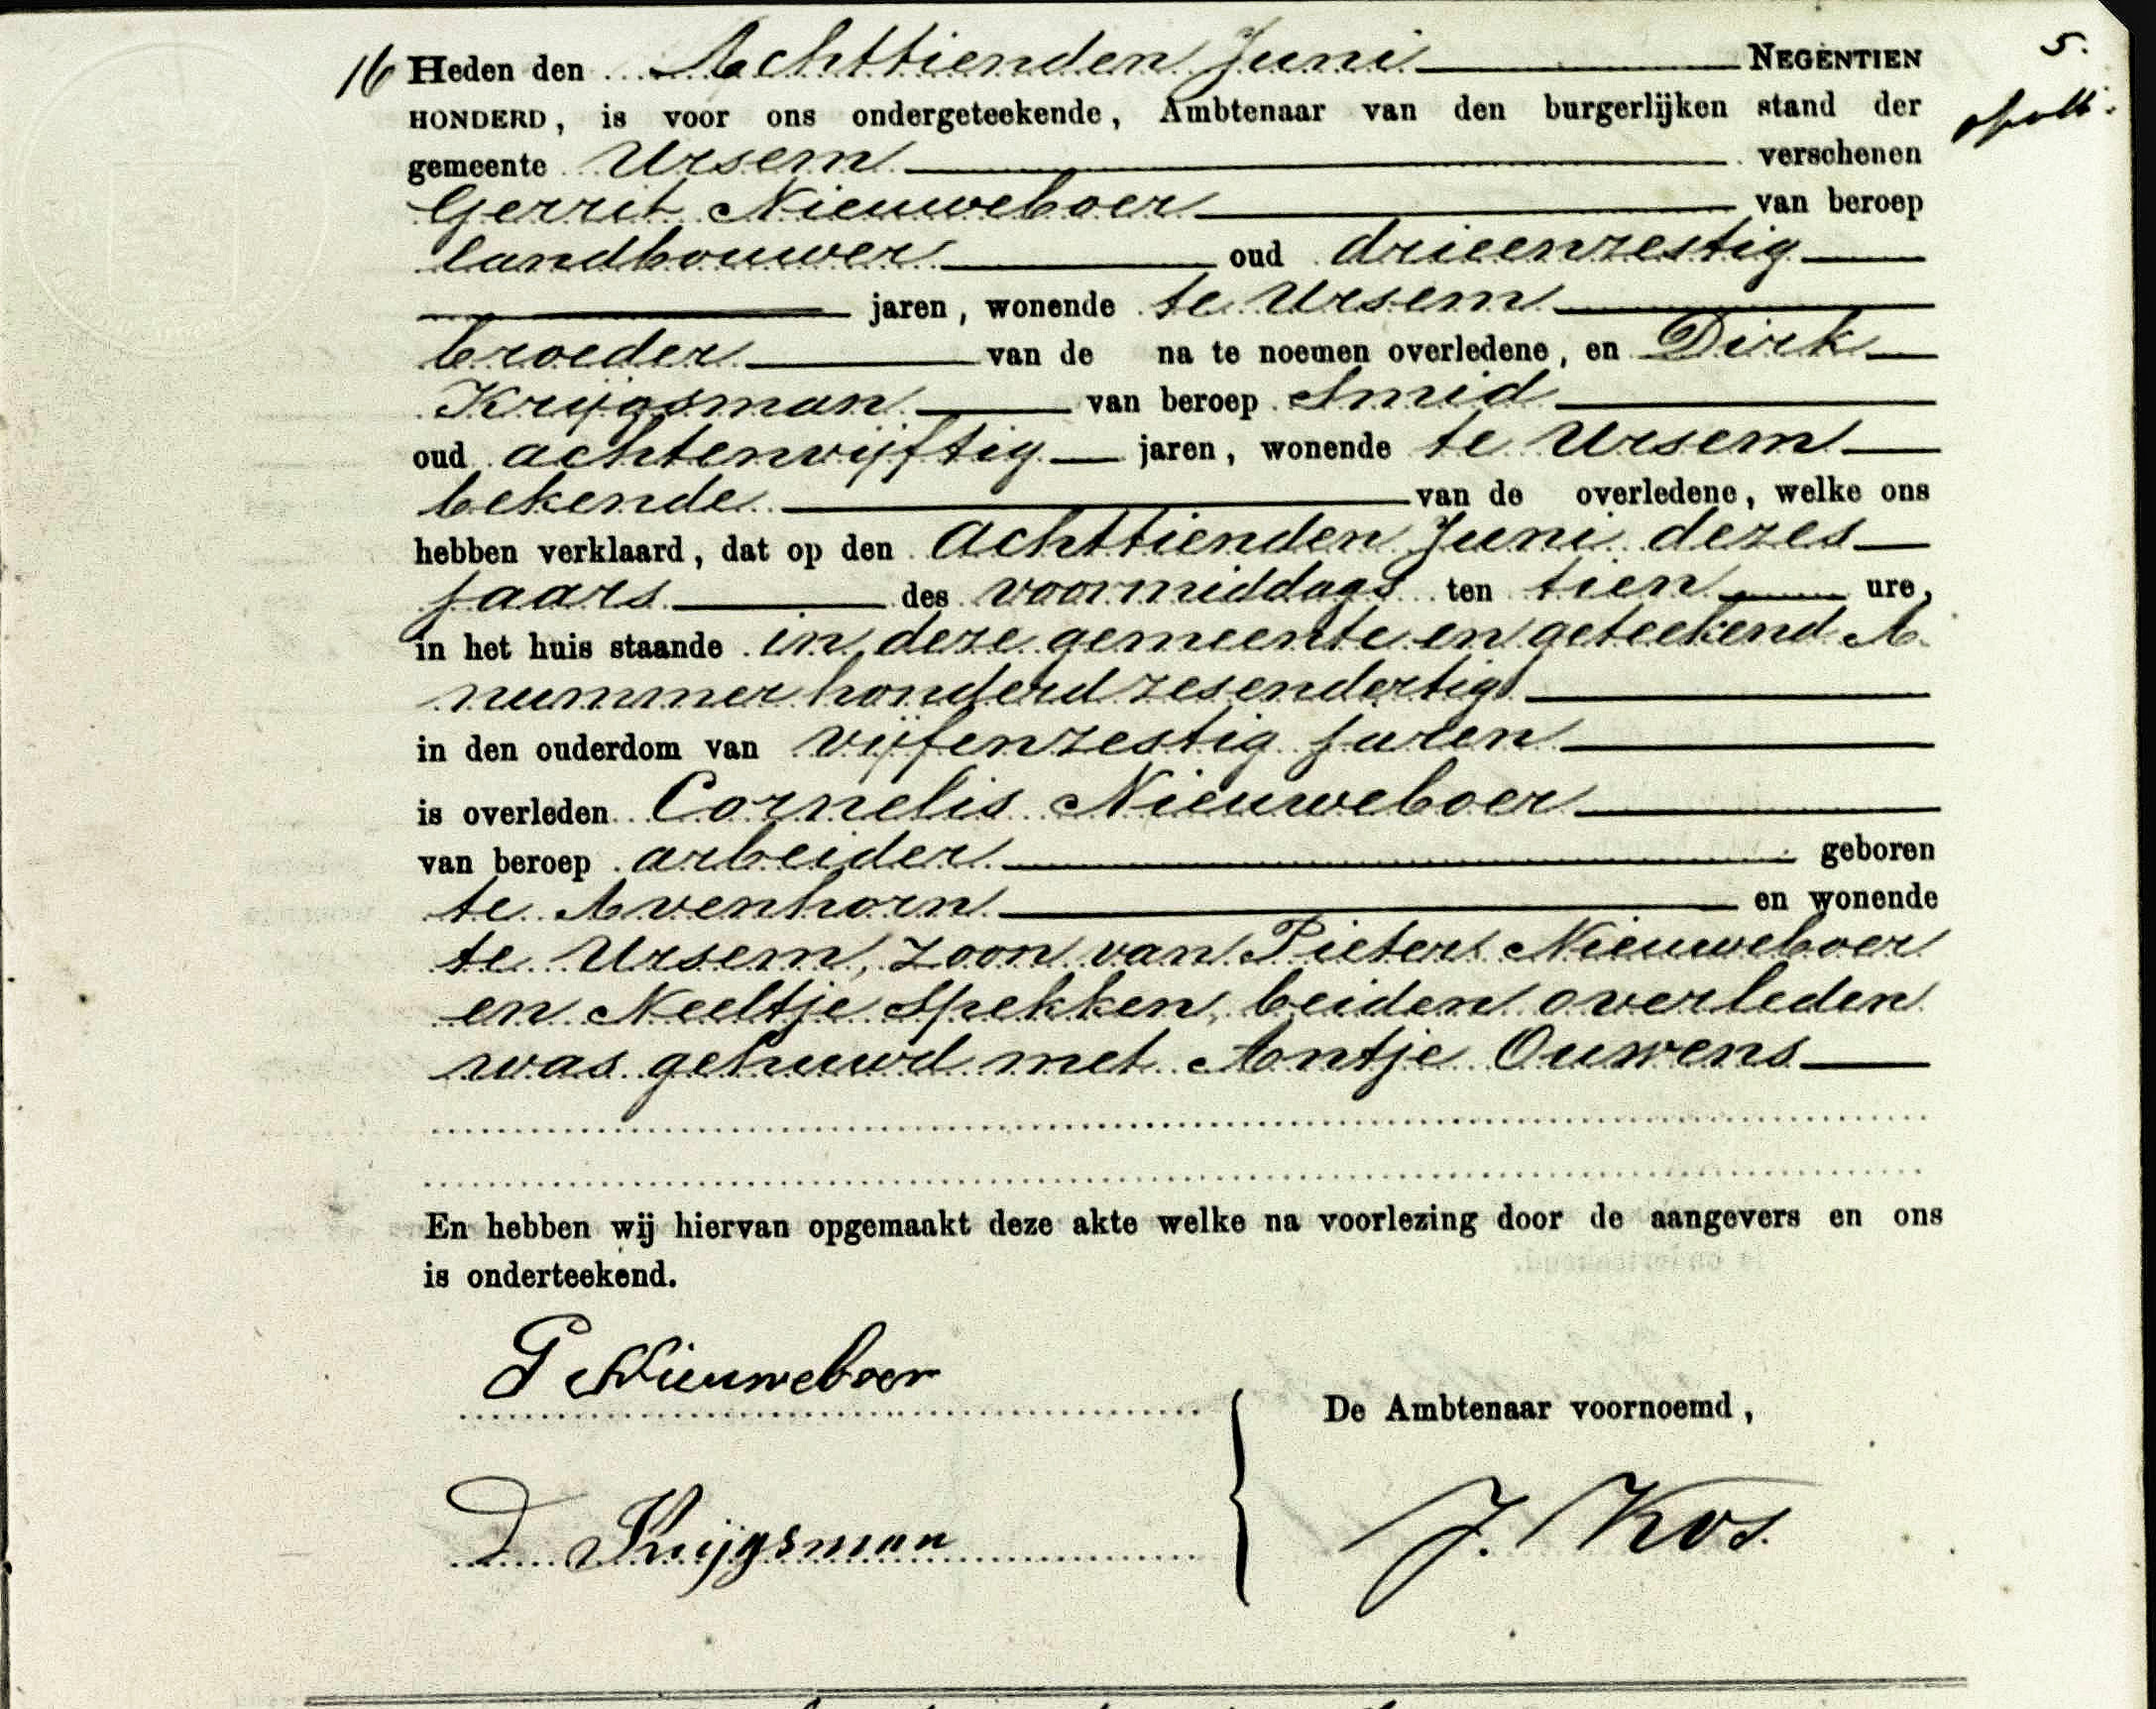 5.
16 Heden den Achttienden Juni NEGENTIEN
HONDERD, is voor ons ondergeteekende, Ambtenaar van den burgerlijken stand der
gemeente Ursem verschenen
Gerrit Nieuweboer van beroep
landbouwer oud drieenzestig
jaren, wonende te Ursem
broeder van de na te noemen overledene, en Dirk
Krijgsman van beroep Smid
oud achtenvijftig jaren, wonende te Ursem
bekende van de overledene, welke ons
hebben verklaard, dat op den Achttienden Juni dezes
jaars des voormiddags ten tien ure,
in het huis staande in deze gemeente en geteekend A
nummer honderd zesendertig
in den ouderdom van vijfenzestig jaren
is overleden Cornelis Nieuweboer
van beroep arbeider geboren
te Avenhorn en wonende
te Ursem, zoon van Pieter Nieuweboer
en Neeltje Spekken, beiden overleden
was gehuwd met Antje Ouwens
En hebben wij hiervan opgemaakt deze akte welke na voorlezing door de aangevers en ons
is onderteekend.
G Nieuweboer
De Ambtenaar voornoemd,
D Krijgsman
J. Kos.